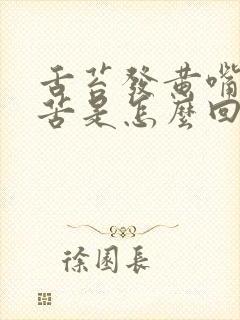 舌苔發黃嘴
苦是怎麼回
徐園長